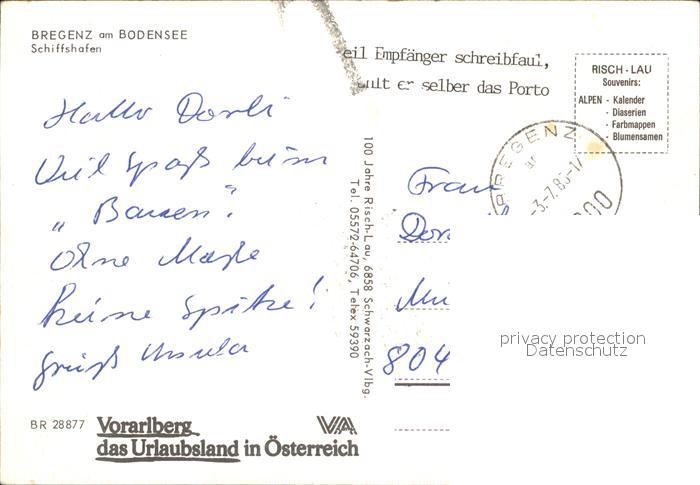 BREGENZ am BODENSEE
Schiffshafen
eil Empfänger schreibfaul,
er selber das Porto
RISCH-LAU
Souvenirs:
ALPEN - Kalender
- Diaserien
- Farbmappen
- Blumensamen
BREGENZ
-3.-7.86-17
Hallo Dorli
Viel Spaß beim
„ Bauen".
Ohne Maße
keine Spitze!
Grüß Ursula
100 Jahre Risch-Lau, 6858 Schwarzach-Vlbg.
Tel. 05572-64706, Telex 59390
Frau
Dor
804
privacy protection
Datenschutz
BR 28877
Vorarlberg
das Urlaubsland in Österreich
VA